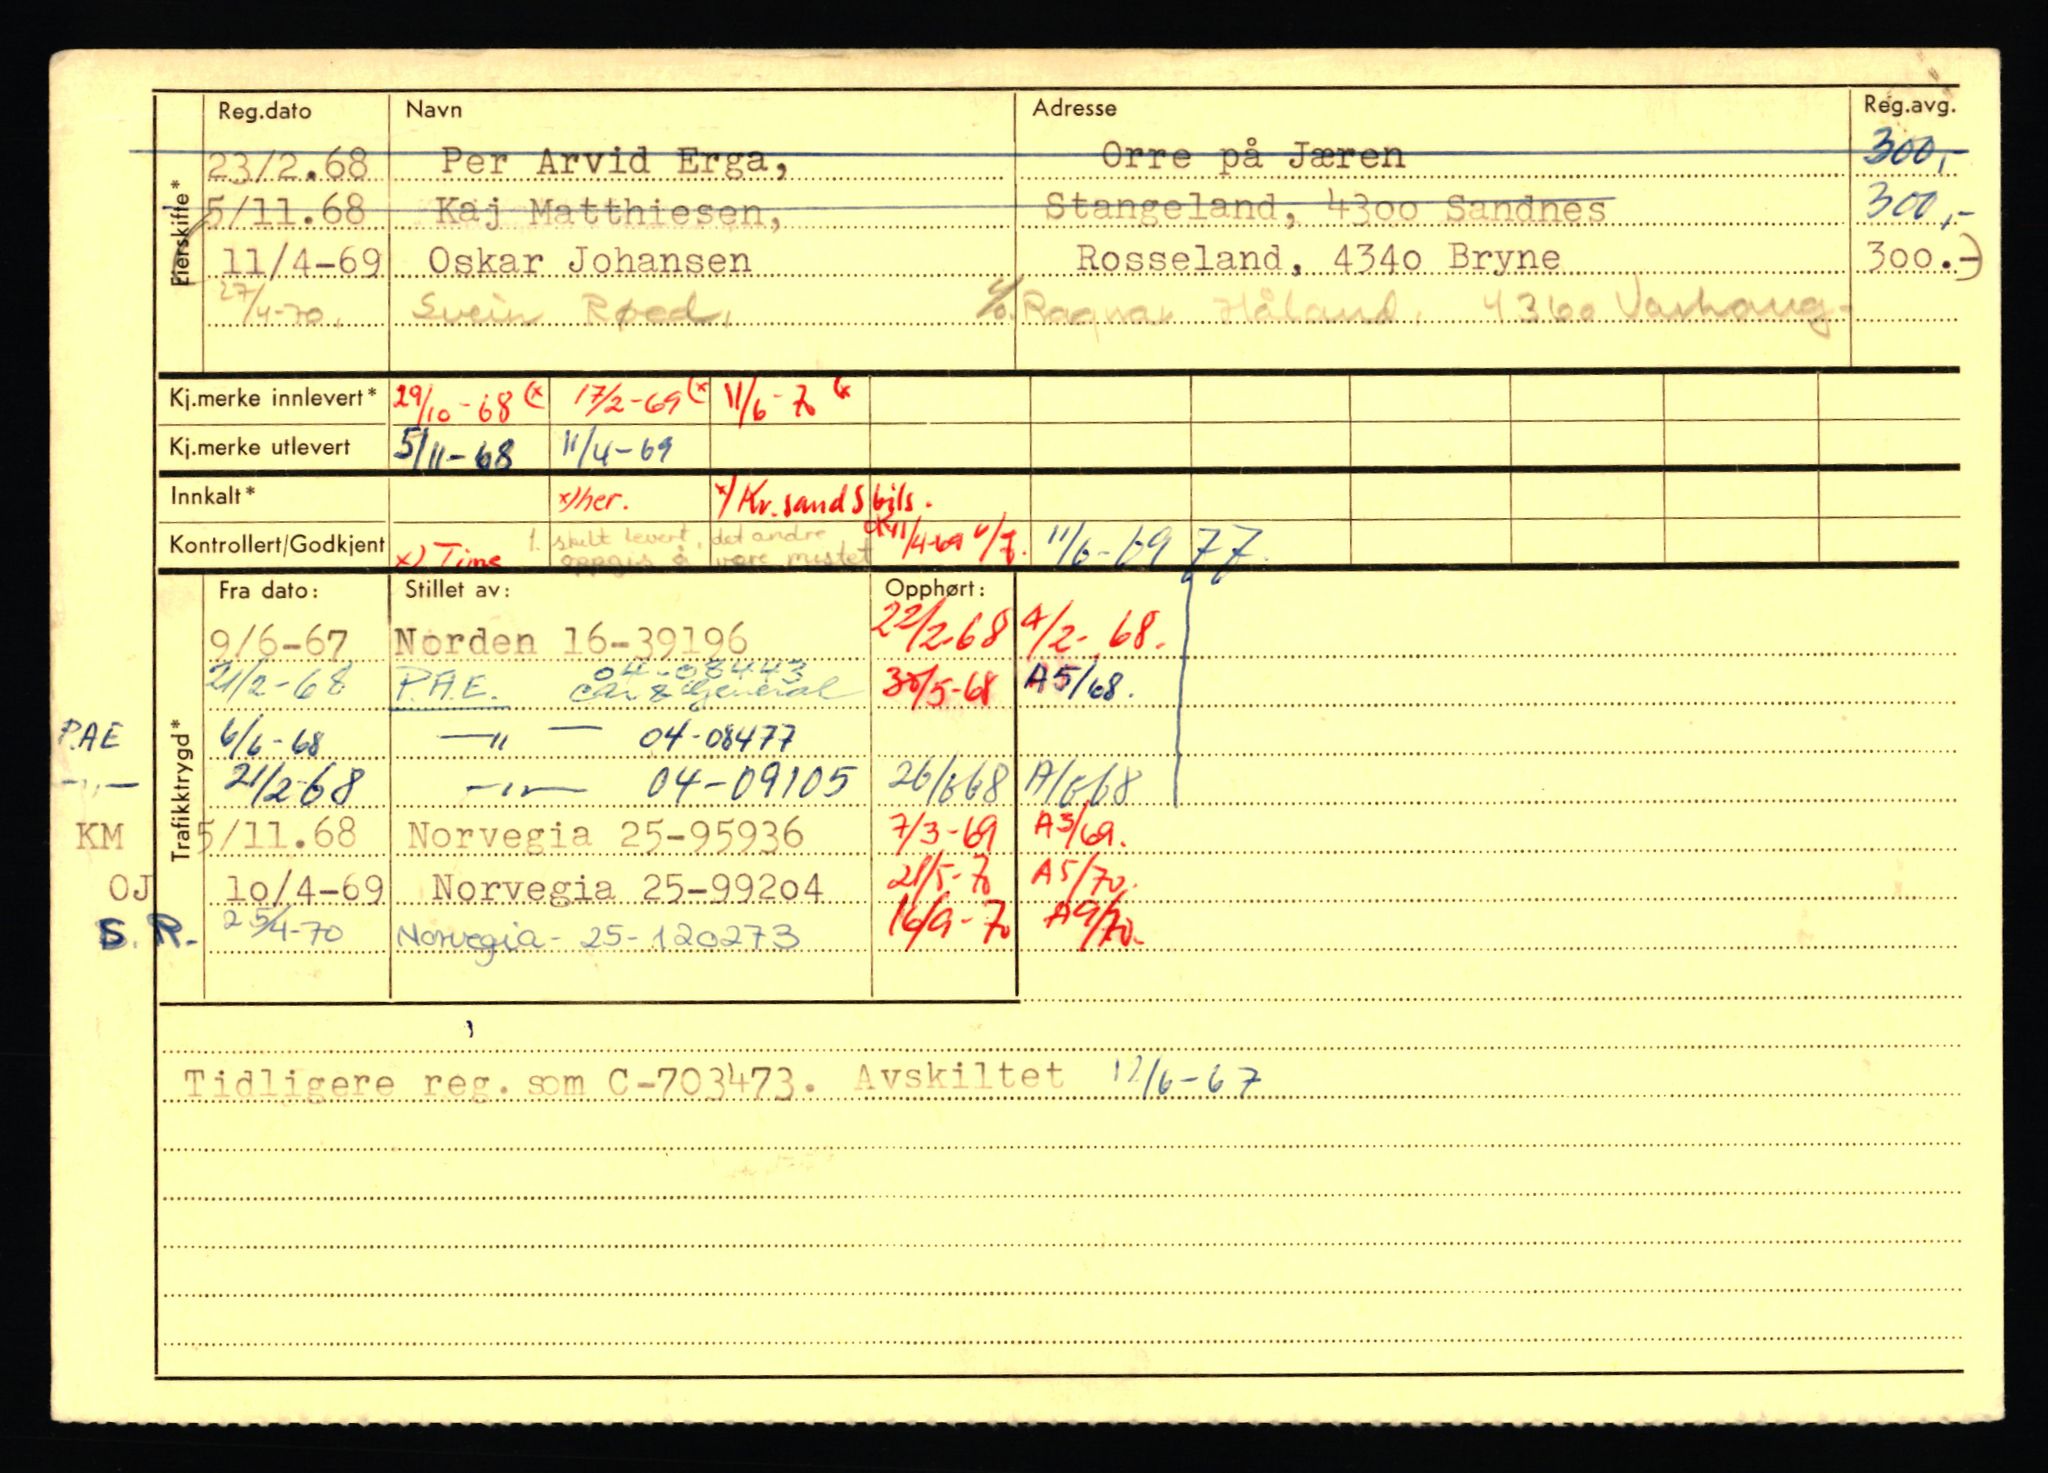 Reg.dato Navn Adresse Reg.avg.
Eierskifte*
23/2.68 Per Arvid Erga, Orre på Jæren 300,-
5/11.68 Kaj Matthiesen, Stangeland, 4300 Sandnes 300,-
11/4-69 Oskar Johansen Rosseland, 4340 Bryne 300.-)
27/4-70. Svein Røed, c/o. Ragnar Håland, 4360 Varhaug.
Kj.merke innlevert* 29/10-68 (x 17/2-69 (x 11/6-70 (x
Kj.merke utlevert 5/11-68 11/4-69
Innkalt* x) her. x) Kr.sand S bils.
Kontrollert/Godkjent x) Time 1. skilt levert, det andre 11/4-69 11/6-69 77.
oppgis å være mistet
Fra dato: Stillet av: Opphørt:
Trafikktrygd*
9/6-67 Norden 16-39196 22/2-68 A/2-68.
04-08443
21/2-68 P.A.E. Car & General 30/5-68 A5/68.
P.AE 6/6-68 —"— 04-08477
—"— 21/2-68 —"— 04-09105 26/6 68 A/6 68
KM 5/11.68 Norvegia 25-95936 7/3-69 A3/69.
OJ 10/4-69 Norvegia 25-99204 21/5-70 A5/70.
S. R. 25/4-70 Norvegia - 25-120273 16/9-70 A9/70.
Tidligere reg. som C-703473. Avskiltet 12/6-67